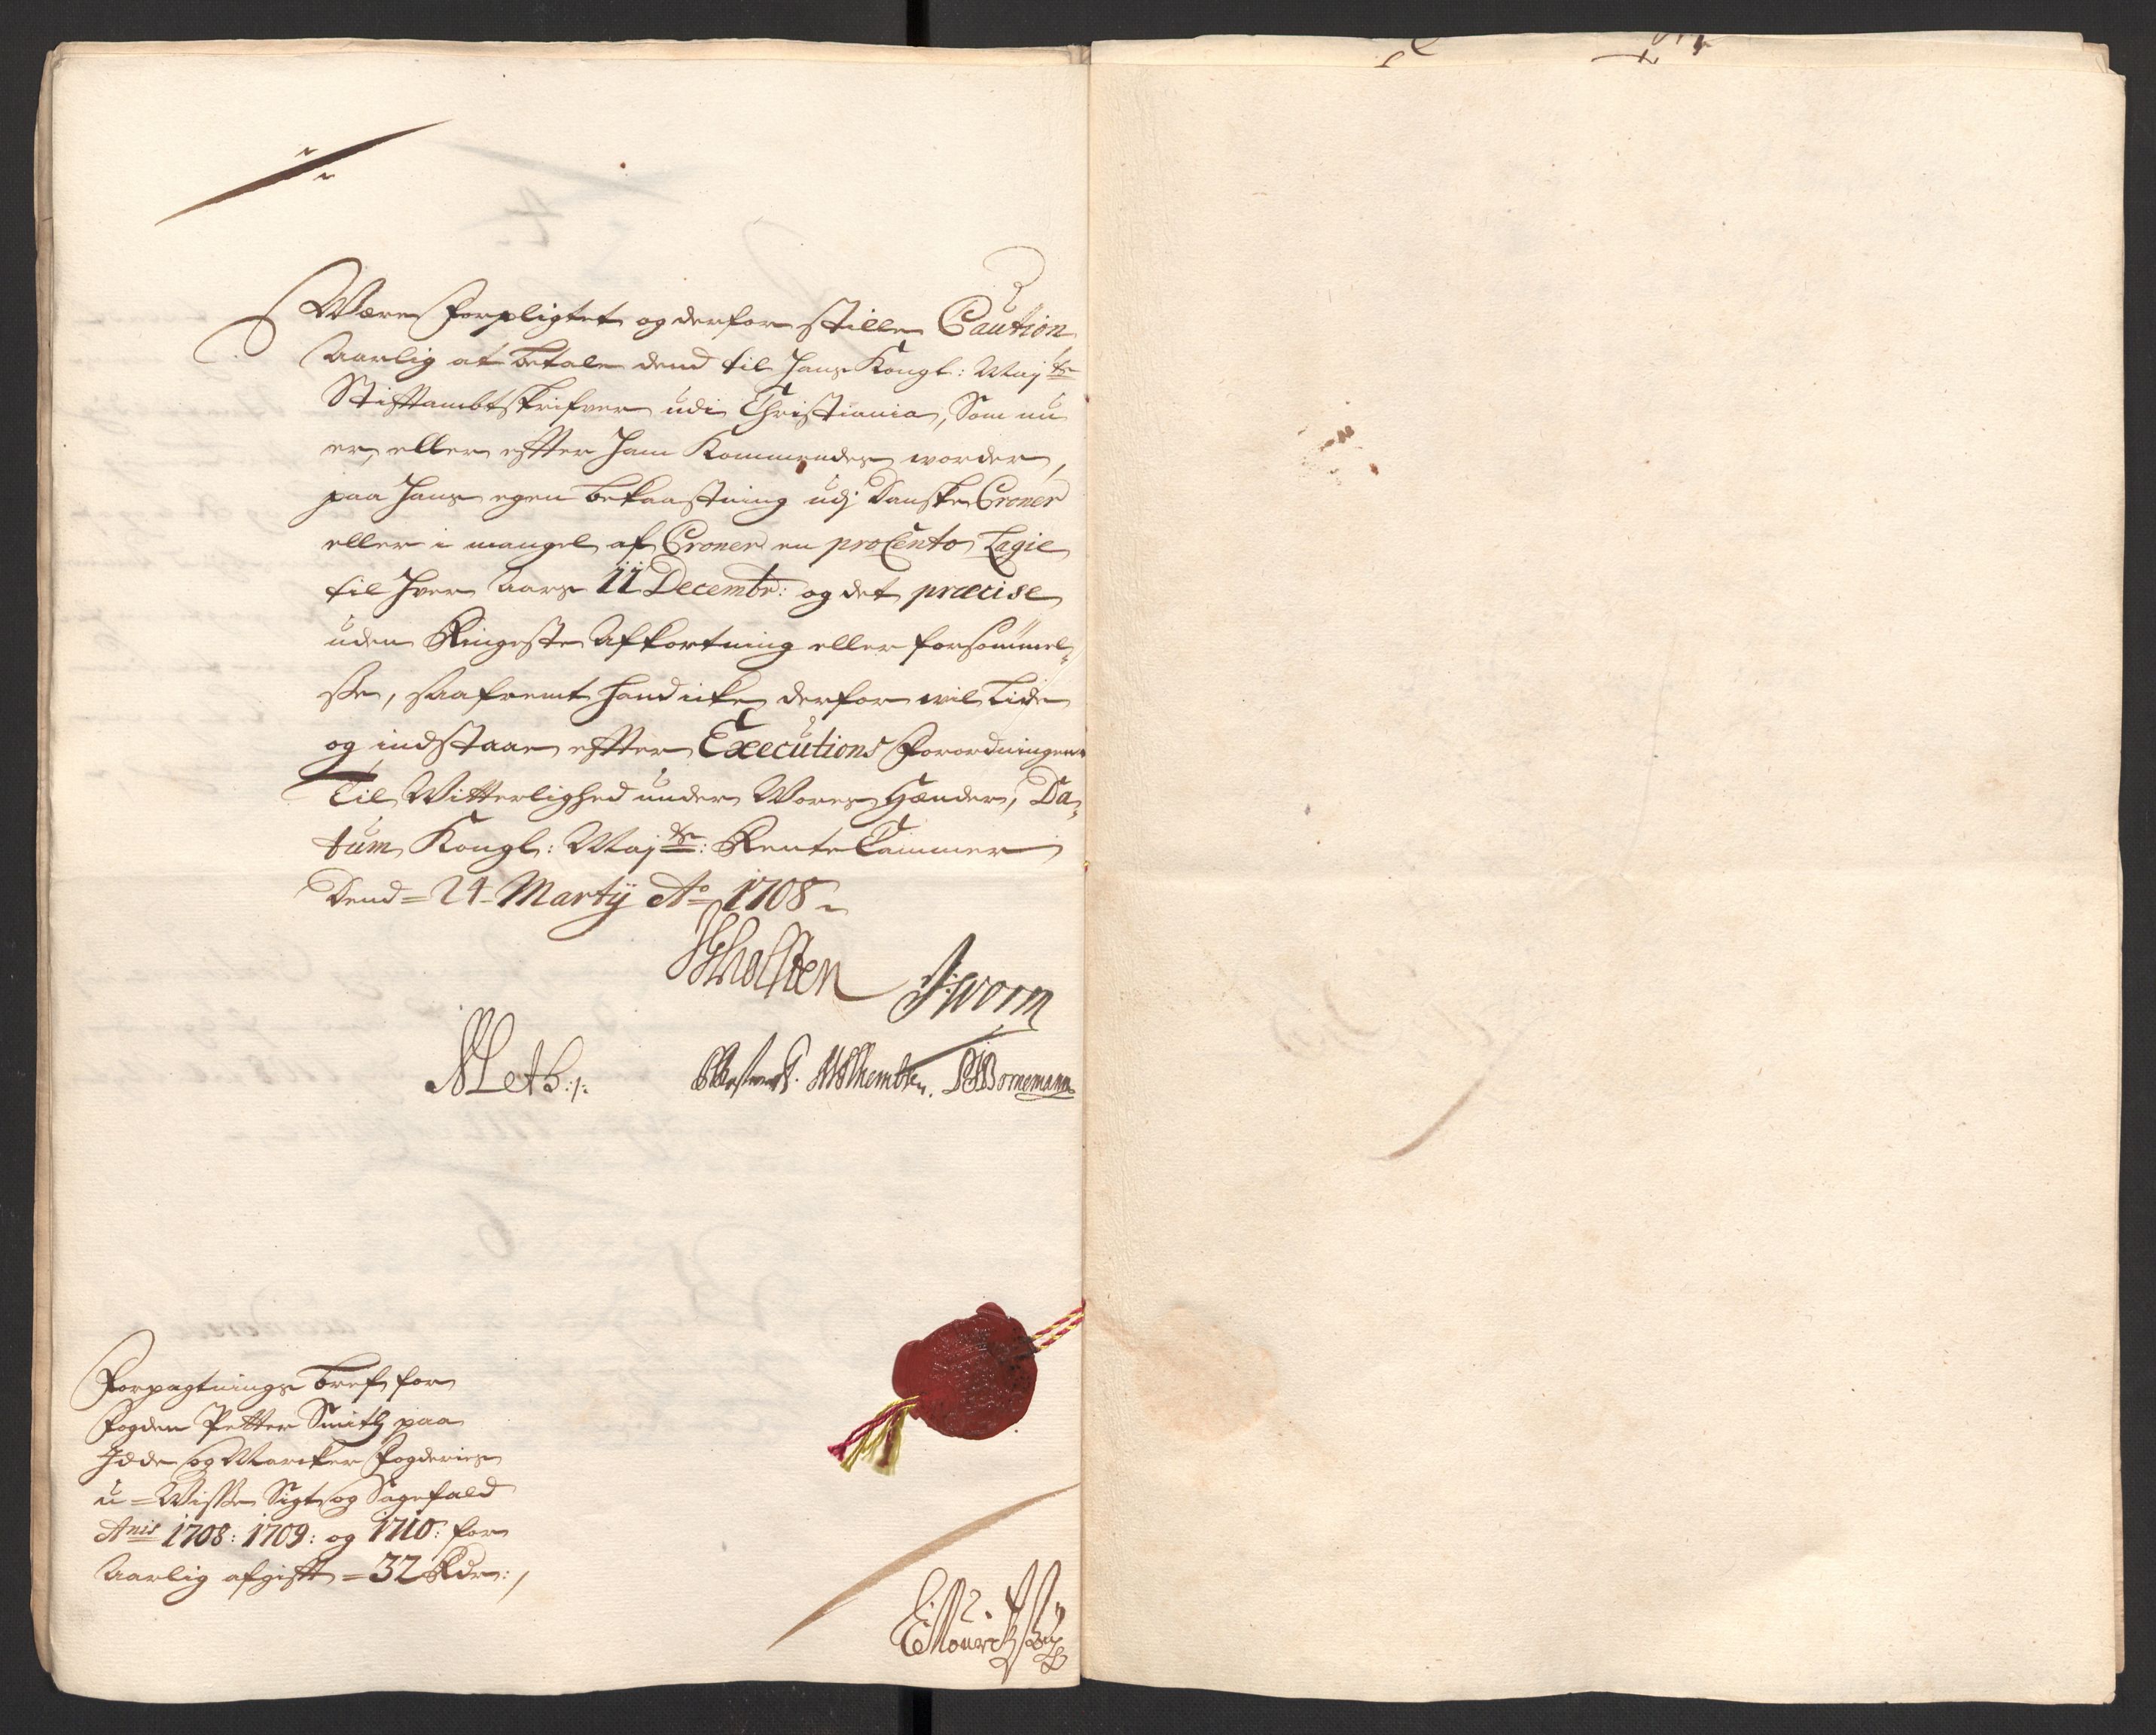 Være forpligtet og derfor stille Caution
Aarlig at betale dend til Hans Kongl: Maj:ts
Stiftambtskrifver udi Christiania, Som nu
er, eller efter ham Kommendes worder,
paa Hans egen bekaastning udj Danske Croner
eller i mangel af Croner en proCento Lagie
til Hver Aars 11 Decembr: og det præcise
uden Ringeste Afkortning eller forsømmel,,
sse, saafremt hand icke derfor wil Lide
og indstaae efter Executions Forordningen
Til Witterlighed under Wores Hænder, Da,,
tum Kongl: Maj:ts: Rente Cammer
Dend = 24 - Martij Ao 1708
Worm
Bornemann
Forpagtnings bref for
Fogden Petter Smith paa
Jdde og Marcker Fogderies
u=Wisse Sigt og Sagefald
Anis 1708: 1709: og 1710: for
Aarlig afgift = 32 Rdr: